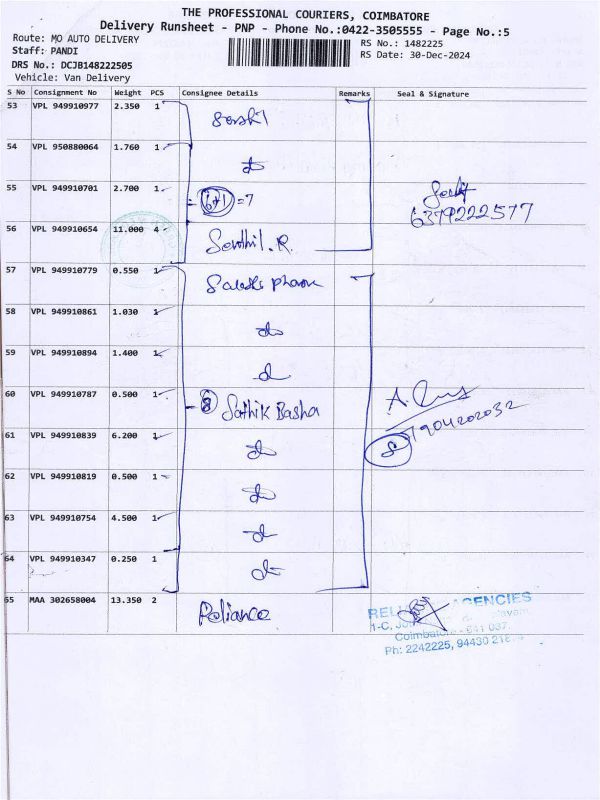 THE PROFESSIONAL COURIERS, COIMBATORE
Delivery Runsheet - PNP - Phone No.:0422-3505555 - Page No.:5
Route: MO AUTO DELIVERY
RS No.: 1482225
Staff: PANDI
RS Date: 30-Dec-2024
DRS No.: DCJB148222505
Vehicle: Van Delivery
S No Consignment No Weight PCS Consignee Details Remarks Seal & Signature
53 VPL 949910977 2.350 1
54 VPL 950880064 1.760 1 do
55 VPL 949910701 2.700 1 = 6+1 = 7
6379222577
56 VPL 949910654 11.000 4 Senthil.R.
57 VPL 949910779 0.550 1
58 VPL 949910861 1.030 1 do
59 VPL 949910894 1.400 1 do
60 VPL 949910787 0.500 1 - 8 Sathik Basha
7904202032
61 VPL 949910839 6.200 1 do 8
62 VPL 949910819 0.500 1 do
63 VPL 949910754 4.500 1 do
64 VPL 949910347 0.250 1 do
65 MAA 302658004 13.350 2 Reliance
AGENCIES
1-C,
Coimbatore - 641 037.
Ph: 2242225, 94430